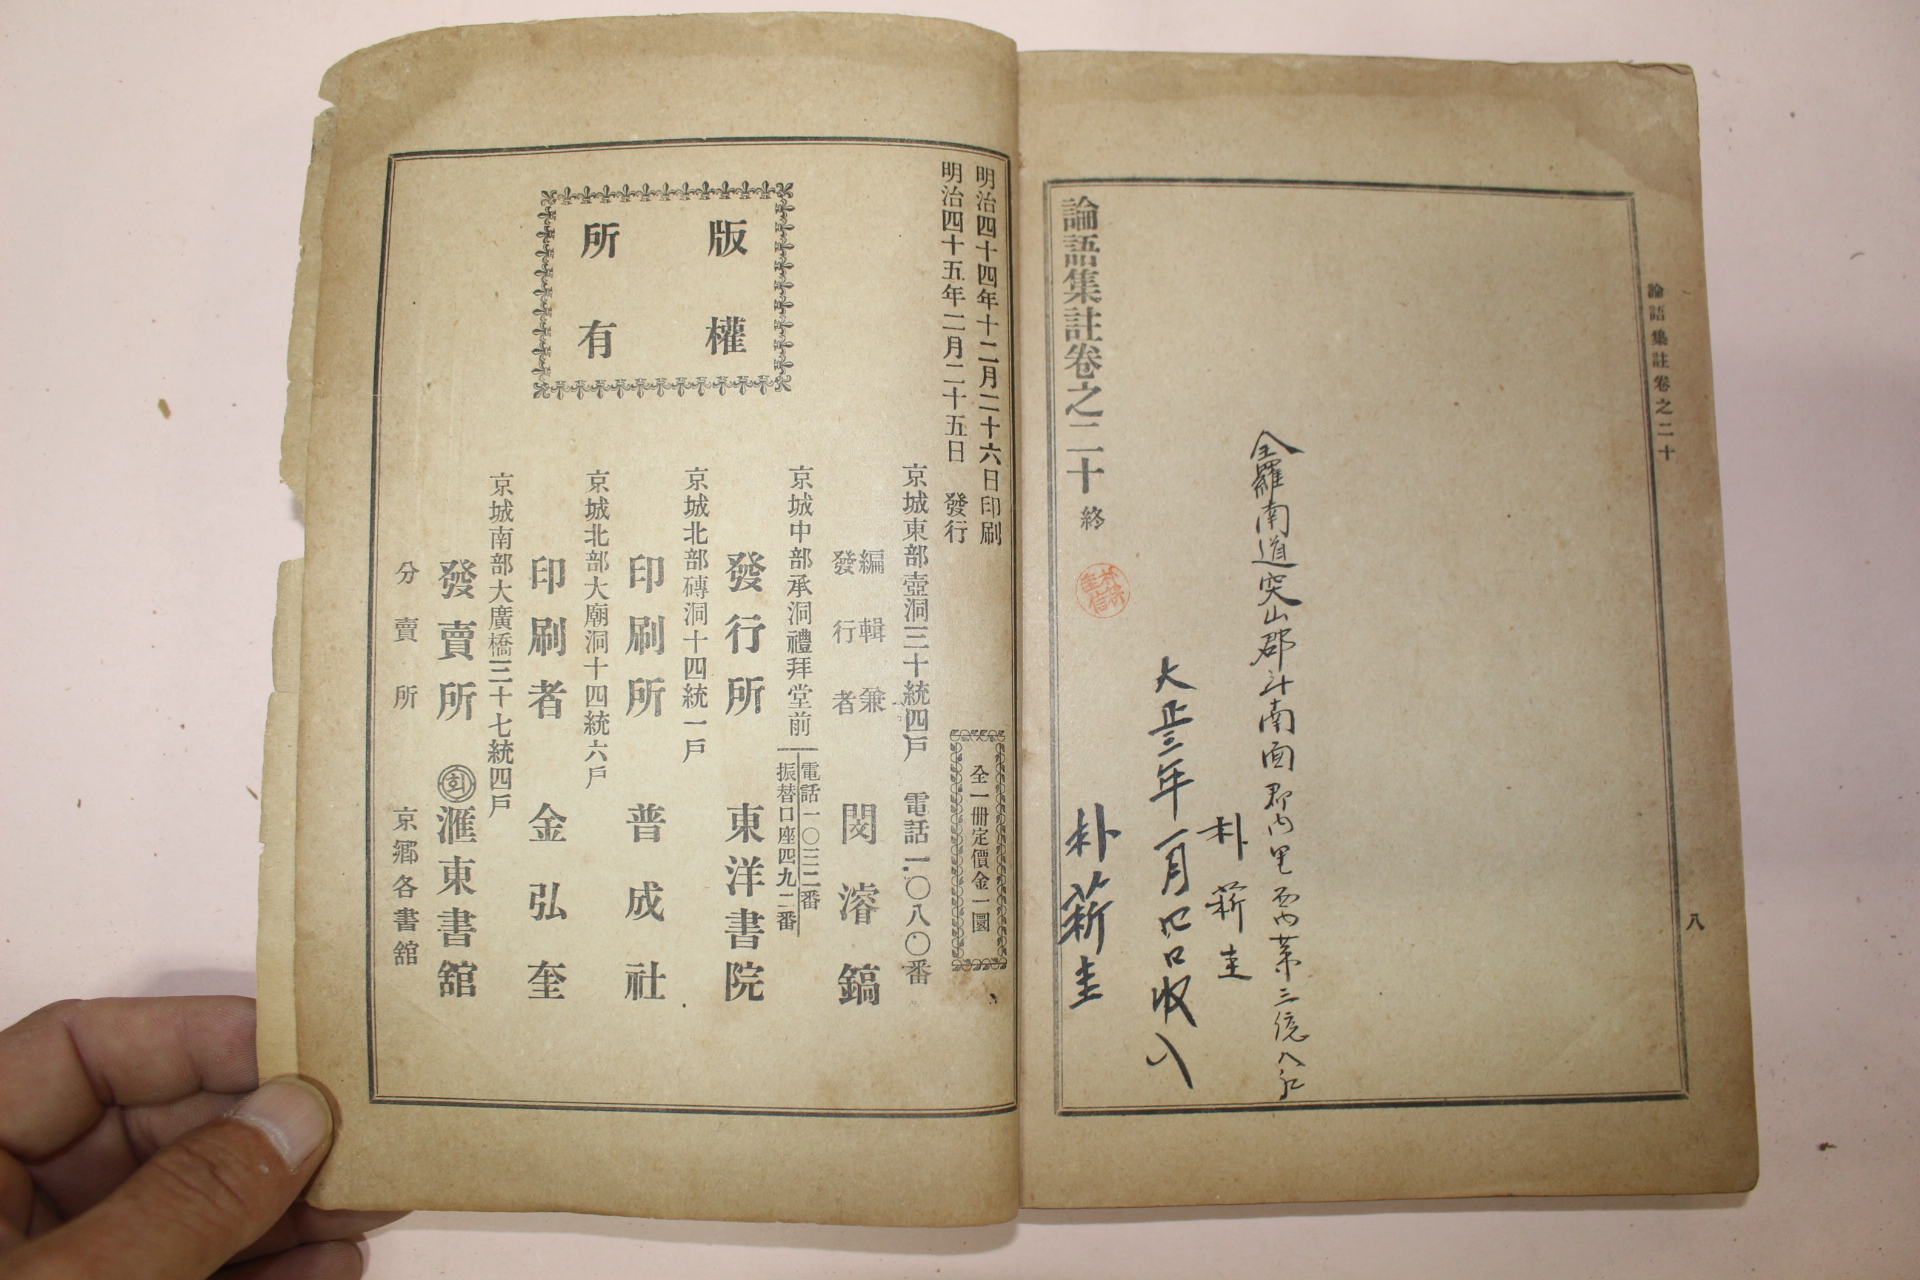 論語集註卷之二十
八
論語集註卷之二十 終
全羅南道突山郡斗南面郡內里
朴薪圭
大正三年一月四日收入
朴薪圭
明治四十四年十二月二十六日印刷
明治四十五年二月二十五日 發行
全一冊定價金一圜
版權
所有
京城東部壺洞三十統四戶 電話一〇八〇番
編輯兼
發行者 閔濬鎬
京城中部承洞禮拜堂前
電話一〇三二番
振替口座四九二番
發行所 東洋書院
京城北部磚洞十四統一戶
印刷所 普成社
京城北部大廟洞十四統六戶
印刷者 金弘奎
京城南部大廣橋三十七統四戶
發賣所 회 滙東書舘
分賣所 京鄉各書舘